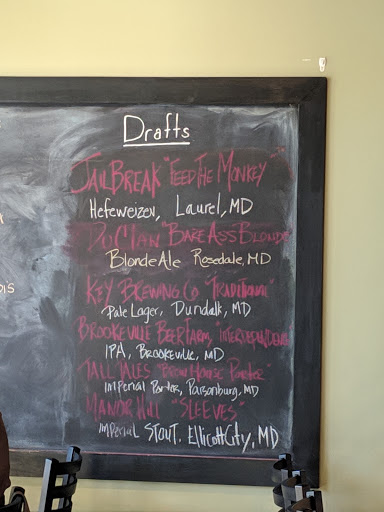 Drafts
JAILBREAK "FEED THE MONKEY"
Hefeweizen, Laurel, MD
DuClaw "BARE ASS" BLONDE
Blonde Ale Rosedale, MD
KEY BREWING CO "TRADITIONAL"
Pale Lager, Dundalk, MD
BROOKEVILLE BEER FARM,
IPA, Brookeville, MD
TALL TALES "BREW HOUSE PORTER"
Imperial Porter, Parsonburg, MD
MANOR HILL "SLEEVES"
Imperial STOUT, Ellicott City, MD